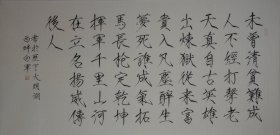 未曾清貧難成
人不經打擊老
天真自古英雄
出煉獄從來富
貴入凡塵醉生
夢死誰成氣拓
馬長槍定乾坤
揮軍千里山河
在立名揚威傳
後人
書於歷下大明湖
西畔